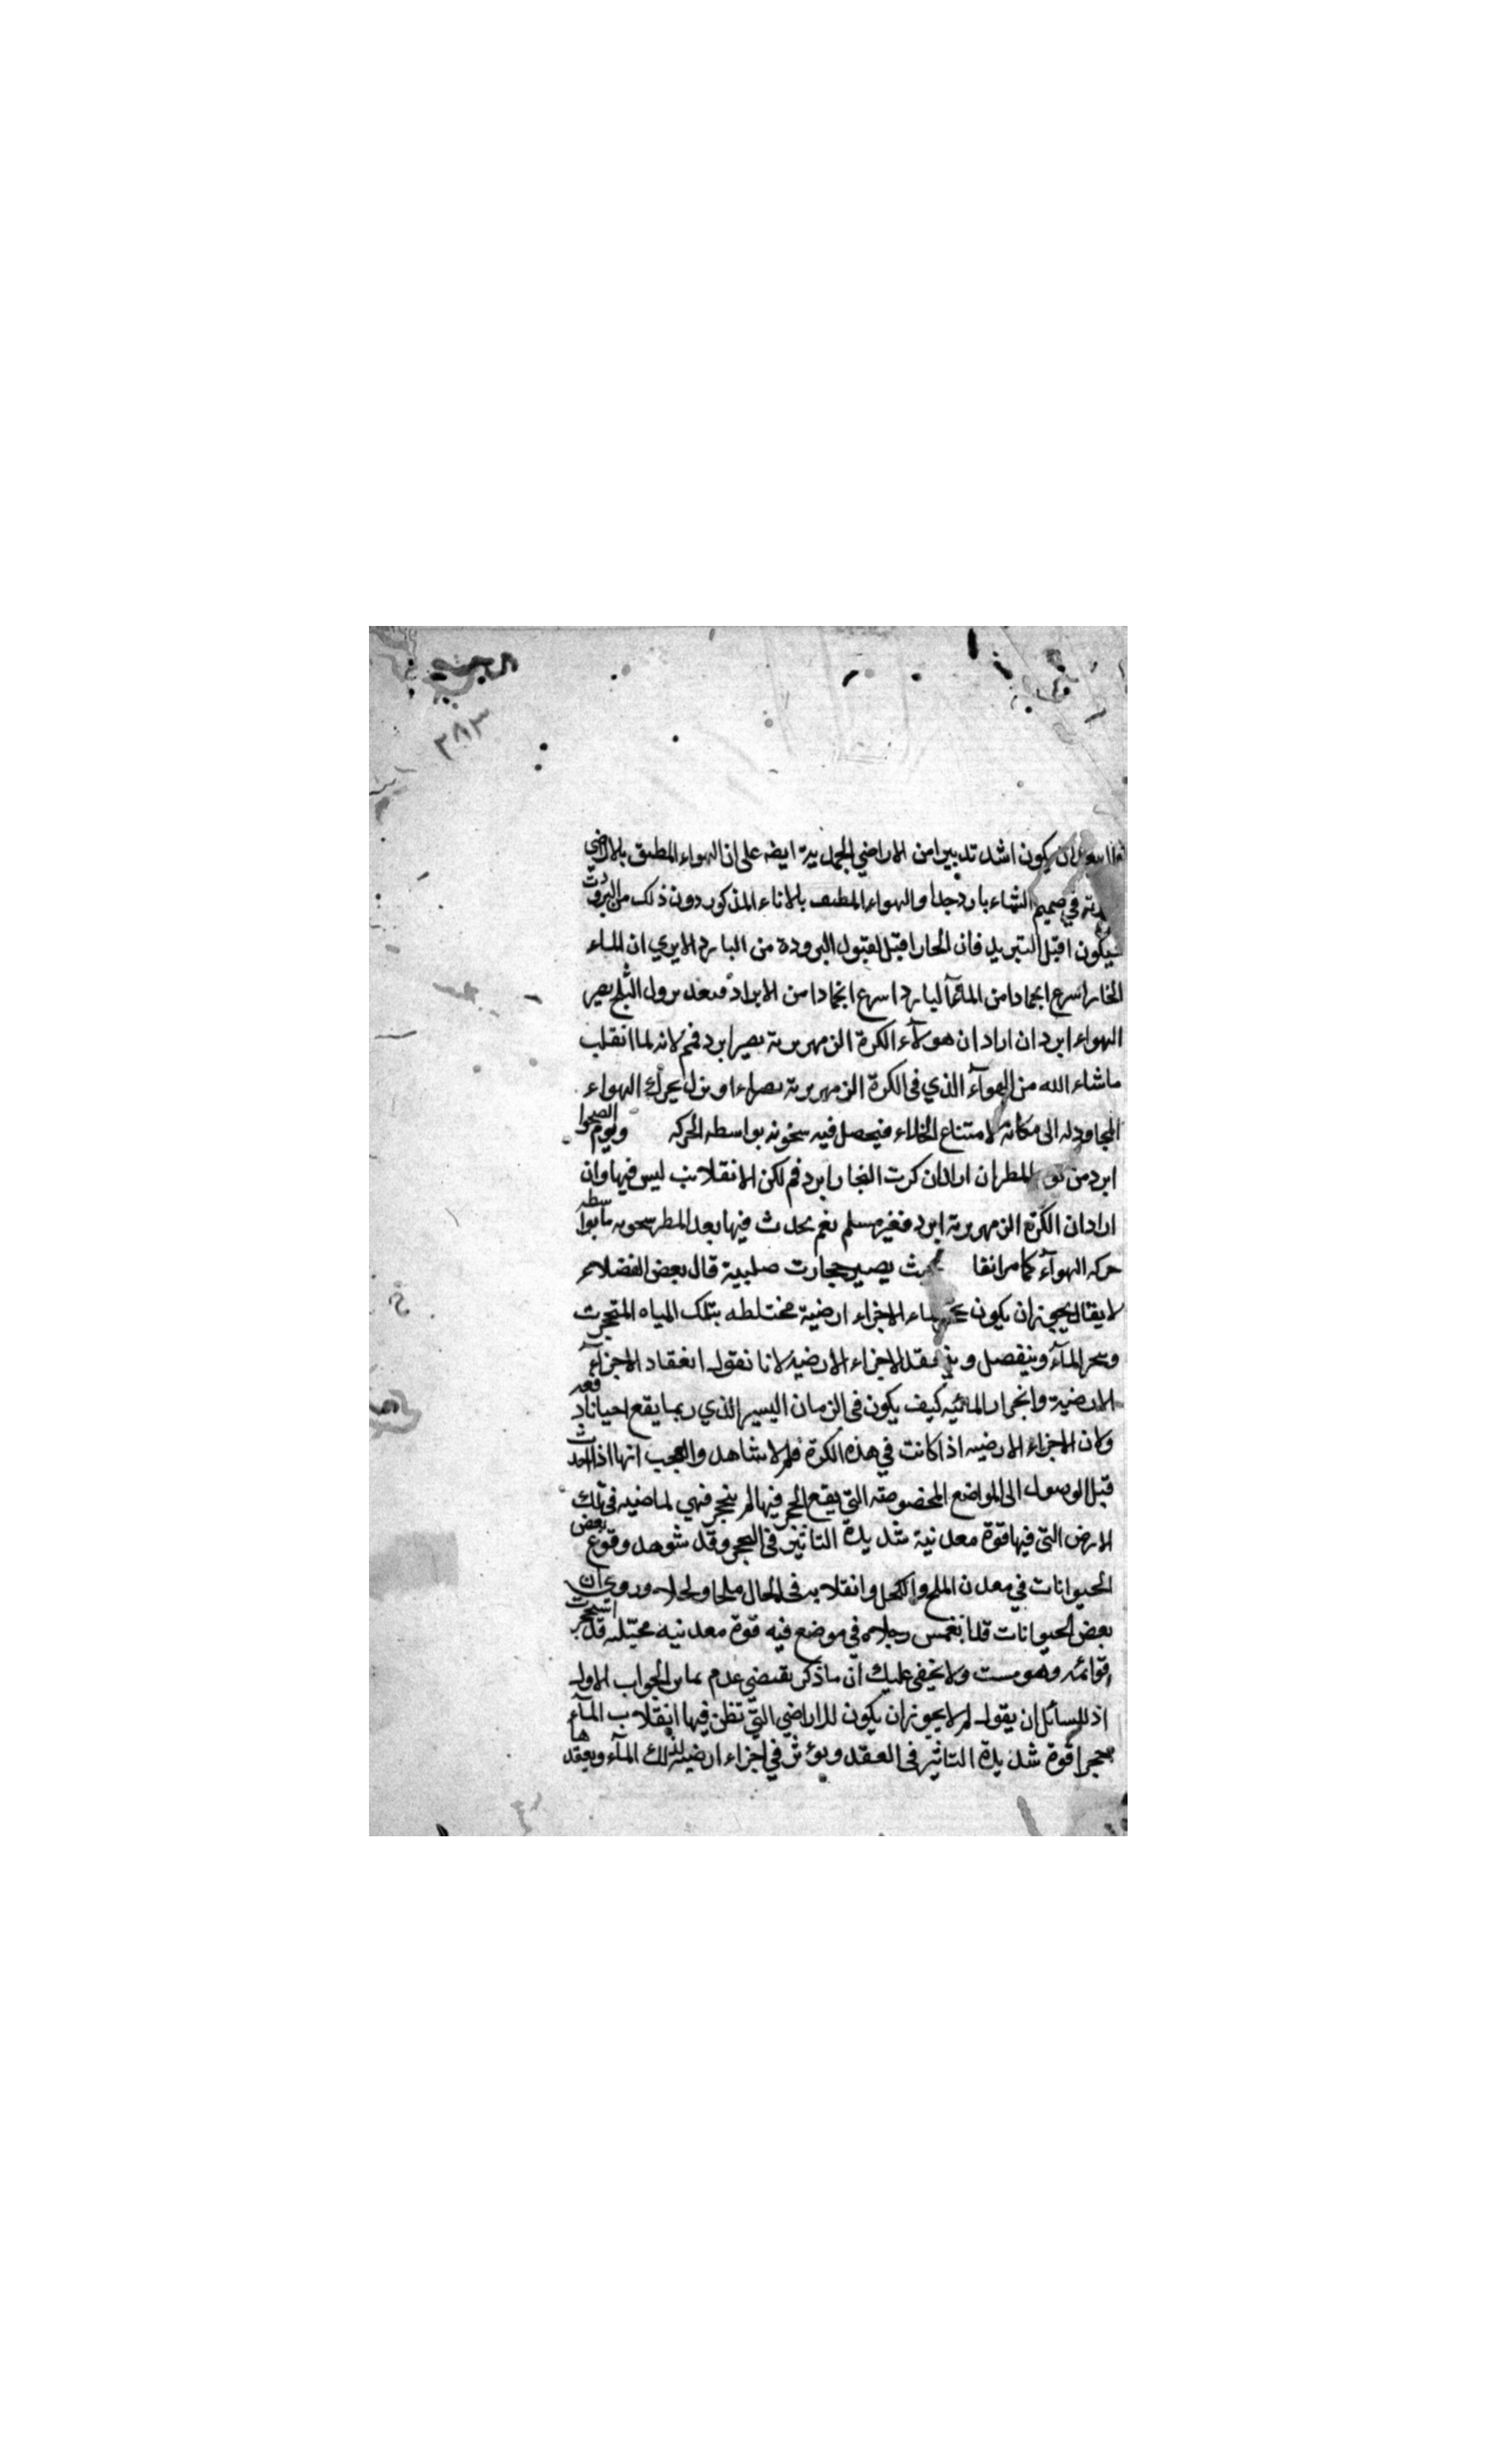 ٢٨٣
ان يكون اشد تدبيرا من الاراضي الجمدية ايضه على ان الهواء المطبق بالاراضي
في صميم الشتاء بارد جدا والهواء المطىف بالاناء المذكور دون ذلك من البرودت
سيكون اقبل التبريد فان الحار اقبل لقبول البرودة من البارد الا يري ان الماء
الحار اسرع انجمادا من الماء البارد اسرع انجمادا من الابرد فبعد نزول الثلج يصير
الهواء ابرد ان اراد ان هولاء الكرة الزمهريرية يصير ابرد فمم لانه لما انقلب
ماشاء الله من الهوآء الذي فى الكرة الزمهريرية بصراء او نزل يحرك الهواء
المجاور له الى مكانه لامتناع الخلاء فيحصل فيه سخونه بواسطه الحركه ويوم الصحوا
ابرد من المطر ان اراد ان كرت البخار ابرد فمم لكن الانقلاب ليس فيها وان
اراد ان الكرة الزمهريرية ابرد فغير مسلم نعم يحدث فيها بعد المطر سخونه ما بواسطه
حركه الهوآء كما مر انفا يصير حجارت صلبية قال بعض الفضلاء
لا يقال يجوز ان يكون الاجزاء ارضية مختلطه بتلك المياه المتحجرت
الماء وينفصل و الاجزاء الارضيه لانا نقول انعقاد الاجزآء
الارضية وانجرار المائيه كيف يكون فى الزمان اليسير الذي ربما يقع احيانا دفعه
ولان الاجزاء الارضيه اذا كانت في هذه الكرة فلم لا نشاهد والعجب انها اذا
قبل الوصول الى المواضع المخصوصته التى يقع الحجر فيها لم ينجر فهي لماضيه فى تلك
الارض التى فيها قوة معدنية شديدة التاثير فى الحجر وقد شوهد وقوع بعض
الحيوانات في معدن الملح والكحل وانقلابه فى الحال ملحا وكحلا وروي ان
بعض الحيوانات قلنا نغمس رجلاه في موضع فيه قوة معدنيه قد تحجرت
قوائمه وهو ولا يخفى عليك ان ما ذكر يقتضى عدم الجواب الاول
اذ للسائل ان يقول لم لا يجوز ان يكون للاراضي التي تظن فيها انقلاب المآء
حجرا قوة شديدة التاثير فى العقد ويؤثر في اجزاء ارضيه لذلك المآء ويعقدها